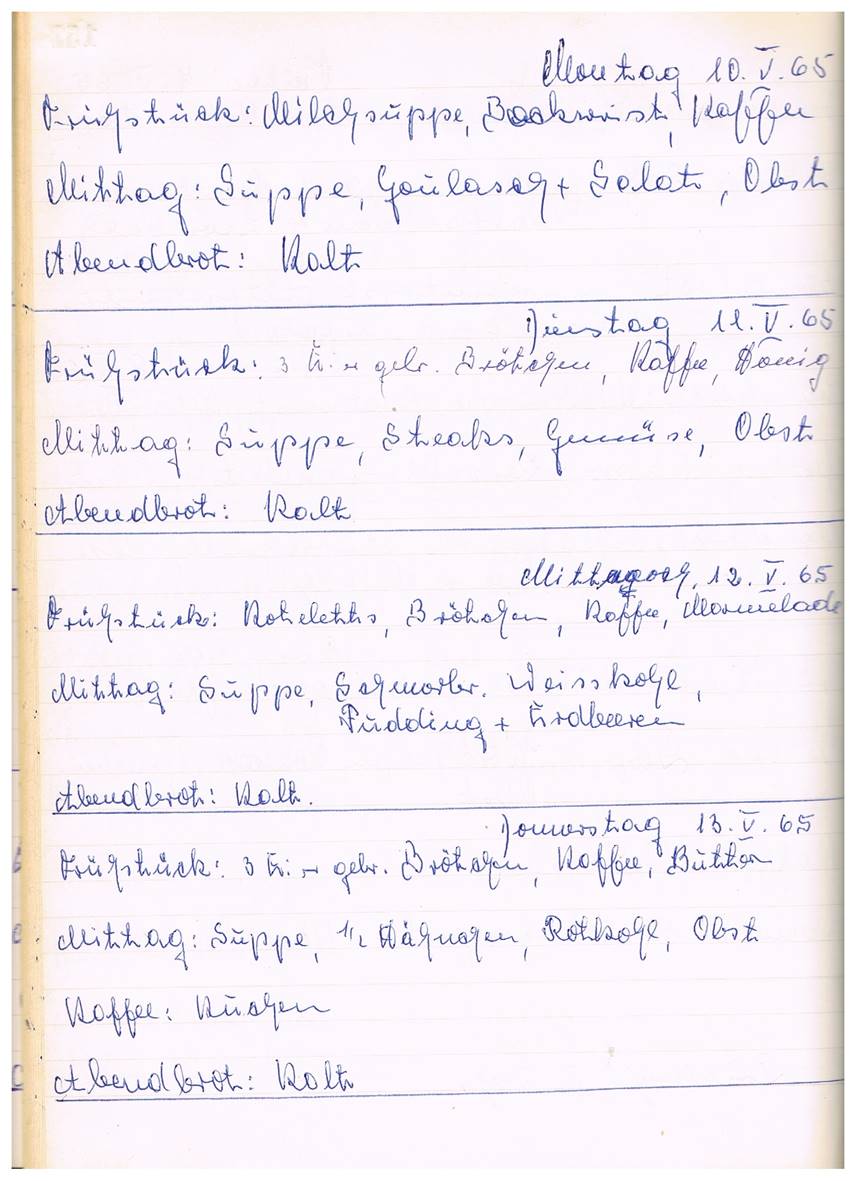 Montag 10.V.65
Frühstück: Milchsuppe, Bockwurst, Kaffee
Mittag: Suppe, Goulasch + Salat, Obst
Abendbrot: Kalt
Dienstag 11.V.65
Frühstück: 3 Ei. gebr. Brötchen, Kaffee, Honig
Mittag: Suppe, Steaks, Gemüse, Obst
Abendbrot: Kalt
Mittwoch, 12.V.65
Frühstück: Koteletts, Brötchen, Kaffee, Marmelade
Mittag: Suppe, Schmorbr. Weisskohl,
Pudding + Erdbeeren
Abendbrot: Kalt.
Donnerstag 13.V.65
Frühstück: 3 Ei. gebr. Brötchen, Kaffee, Butter
Mittag: Suppe, 1/2 Hähnchen, Rotkohl, Obst
Kaffee: Kuchen
Abendbrot: Kalt